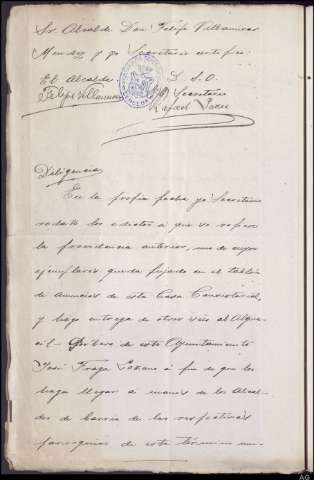 Sr. Alcalde Don Felipe Villamisar
Mendez y yo Secretario certifico.
El Alcalde D. S. O.
Felipe Villamisar El Secretario
Rafael
Diligencia
En la propia fecha yo Secretario
redacté los edictos a que se refiere
la providencia anterior, uno de cuyos
ejemplares queda fijado en el tablón
de anuncios de esta Casa Consistorial,
y hago entrega de otros seis al Algua-
cil Portero de este Ayuntamiento
José Fraga Lozano a fin de que los
haga llegar a manos de los Alcal-
des de barrio de las respectivas
parroquias de este término mu-
AG